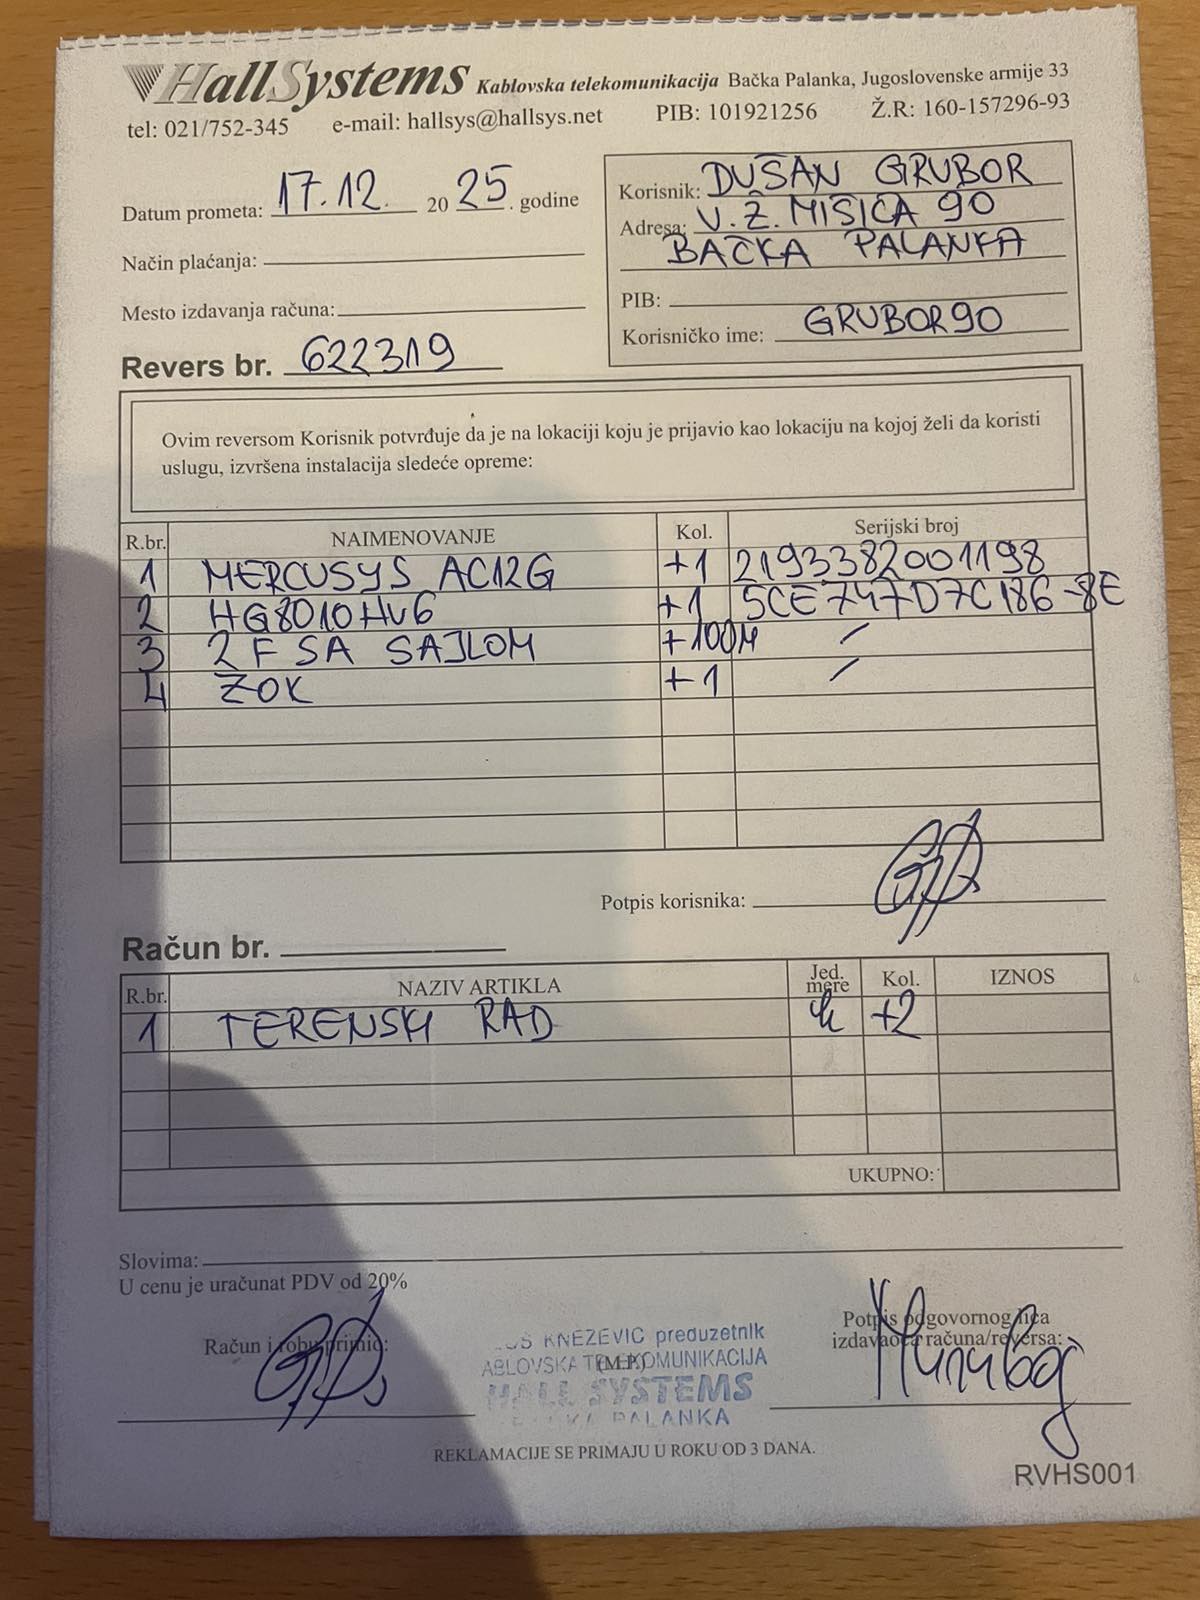 HallSystems Kablovska telekomunikacija Bačka Palanka, Jugoslovenske armije 33
tel: 021/752-345 e-mail: hallsys@hallsys.net PIB: 101921256 Ž.R: 160-157296-93
Datum prometa: 17.12. 20 25. godine
Način plaćanja:
Mesto izdavanja računa:
Revers br. 622319
Korisnik: DUŠAN GRUBOR
Adresa: V. Ž. MIŠIĆA 90
BAČKA PALANKA
PIB:
Korisničko ime: GRUBOR90
Ovim reversom Korisnik potvrđuje da je na lokaciji koju je prijavio kao lokaciju na kojoj želi da koristi
uslugu, izvršena instalacija sledeće opreme:
R.br. NAIMENOVANJE Kol. Serijski broj
1 MERCUSYS AC12G +1 2193382001198
2 HG8010HV6 +1 5CE747D7C186-8E
3 2F SA SAJLOM +100M /
4 ZOK +1 /
Potpis korisnika:
Račun br.
R.br. NAZIV ARTIKLA Jed. mere Kol. IZNOS
1 TERENSKI RAD h +2
UKUPNO:
Slovima:
U cenu je uračunat PDV od 20%
Račun i robu primio:
KNEŽEVIĆ preduzetnik
ABLOVSKA TELEKOMUNIKACIJA
(M.P.)
HALL SYSTEMS
PALANKA
Potpis odgovornog lica
izdavaoca računa/reversa:
REKLAMACIJE SE PRIMAJU U ROKU OD 3 DANA.
RVHS001